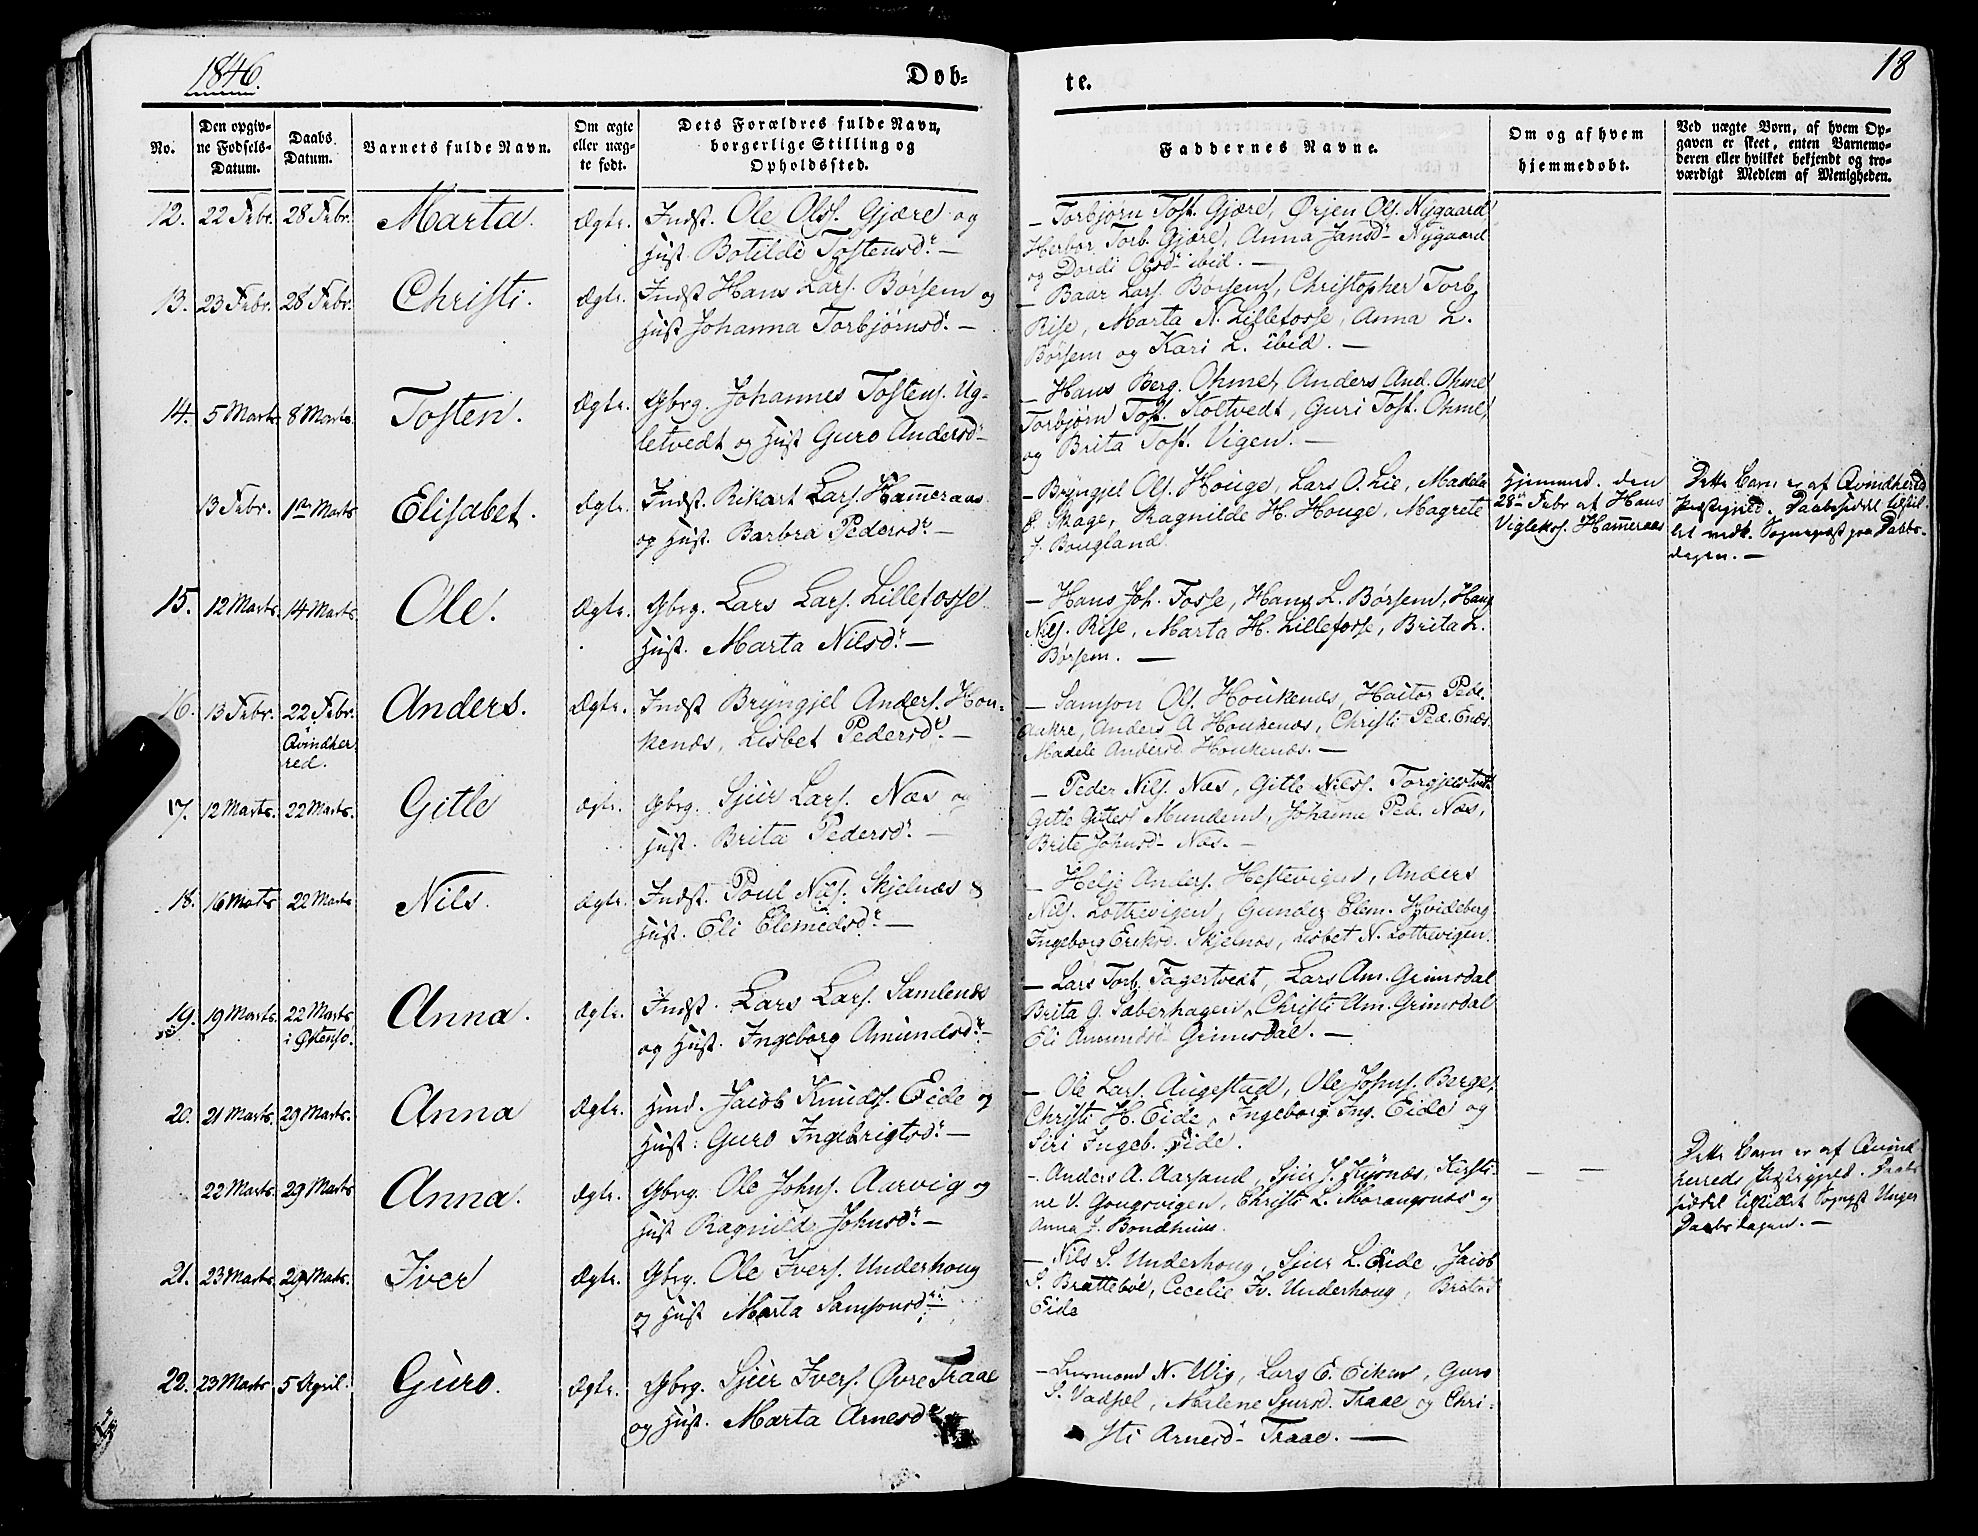 1846.
Døb-
te.
18
No.
Den opgiv-
ne Fødsels-
Datum.
Daabs
Datum.
Barnets fulde Navn.
Om ægte
eller uæg-
te født.
Dets Forældres fulde Navn,
borgerlige Stilling og
Opholdssted.
Faddernes Navne.
Om og af hvem
hjemmedøbt.
Ved uægte Børn, af hvem Op-
gaven er skeet, enten Barnemo-
deren eller hvilket bekjendt og tro-
værdigt Medlem af Menigheden.
12. 22 Febr. 28 Febr. Marta. Ægte. Indst. Ole Ols. Gjære og
Hust. Botilde Tostensdr. —
— Torbjørn Tost. Gjære, Ørjen Ols. Nygaard
Herbor Torb. Gjære, Anna Jansdr Nygaard
og Dordi Olsdr ibid. —
13. 23 Febr. 28 Febr. Christi. Ægte. Indst Hans Lars. Børsem og
Hust Johanna Torbjørnsd. —
— Baar Lars. Børsem, Christopher Torb.
Rise, Marta N. Lillefosse, Anna L.
Børsem og Kari L. ibid. —
14. 5 Marts 8 Marts. Tosten. Ægte. Gbrg. Johannes Tostens. Ug-
letvedt og Hust Guro Andersdr
— Hans Berg. Ohme, Anders And. Ohme
Torbjørn Tost. Koltvedt, Guri Tost. Ohme,
og Brita Tost. Vigen. —
13 Febr. 1ste Marts Elisabet. Ægte. Indst. Rikart Lars. Hameraas
og Hust. Barbra Pedersdr —
— Bryngjel Ols. Houge, Lars O. Lie, Madela
Skage, Ragnilde H. Houge, Magrete
J. Bougland
Hjemmed. den
28de Febr af Hans
Vigleks. Hameraas
Dette Barn er af Qvindherred
Præstegjeld. Daabsseddel tilstil-
let vedk. Sognepræst paa Daabs-
dagen. —
15. 12 Marts. 14 Marts. Ole. Ægte. Gbrg. Lars Lars. Lillefosse.
Hust. Marta Nilsdr. —
— Hans Joh. Fosse, Hans L. Børsem, Hans
Nils. Rise, Marta H. Lillefosse, Brita L.
Børsem. —
16. 13 Febr. 22 Febr. Anders. Ægte. Indst Bryngjel Anders. Hou-
Qvindher
red.
kenæs, Lisbet Pedersdr. —
— Samson Ols. Houkenæs, Haitor Ped.
Aakre, Anders A Houkenæs, Christi Ped. Enæs
Madele Andersd Houkenæs. —
17. 12 Marts. 22 Marts. Gitle Ægte. Gbrg. Sjur Lars. Næs og
Hust. Brita Pedersdr. —
— Peder Nils. Næs, Gitle Nilss.
Gitle Gitles Mundem, Johanna Ped. Næs,
Brite Johnsdr Næs. —
18. 16 Marts 22 Marts Nils. Ægte. Indst. Poul Nils. Skjelnæs &
Hust. Eli Elemedsdr. —
— Helje Anders. Hestevigen, Anders
Nils. Lottrevigen, Gunder Elem. Hvideberg
Ingeborg Eriksd. Skjelnæs, Lisbet N. Lottrevigen.
19. 19 Marts. 22 Marts Anna. Ægte. Indst. Lars Lars. Samlenæs
i Østensø.
og Hust. Ingeborg Amundsdr. —
— Lars Torb. Fagertvedt, Lars Am. Grimsdal
Brita G. Sæberhagen, Christi Am. Grimsdal
Eli Amundsdr Grimsdal. —
20. 21 Marts. 29 Marts. Anna Ægte. Huud. Jacob Knuds. Eide og
Hust. Guro Ingebrigtsdr. —
— Ole Lars. Augestad, Ole Johns. Berge,
Christi H. Eide, Ingeborg Ing. Eide og
Siri Ingeb. Eide.
22 Marts. 29 Marts Anna. Ægte. Gbrg. Ole Johns. Aarvig og
Hust Ragnilde Johnsdr. —
— Anders A. Aarsand, Sjur J. , Kirsti-
ne V. Gougsvigen, Christi L. Mørangsnæs og
Anna J. Bondhuus.
— —
Dette Barn er af Qvind-
herreds Præstegjeld. Daabs
seddel tilstillet Sognpst Unger
Daabsdagen. —
21. 23 Marts. 29 Marts. Iver Ægte. Gbrg. Ole Ivers. Underhoug
og Hust Marta Samsonsdr. —
— Nils S. Underhoug, Sjur L. Eide, Jacob
S. Brattebøe, Cecelie Iv. Underhoug, Brita
Eide
22. 23 Marts 5 April. Guro. Ægte. Gbrg. Sjur Ivers. Øvre Traae
og Hust. Marta Arnesdr
— N. Wig, Lars E. Eiken, Guro
S. , Malene Sjursd. Traae og Chri-
sti Arnesdr Traae. —